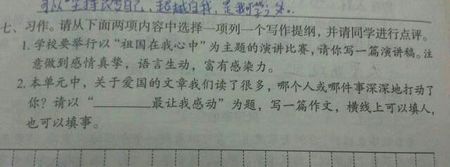 七、习作。请从下面两项内容中选择一项列一个写作提纲，并请同学进行点评。
1. 学校要举行以“祖国在我心中”为主题的演讲比赛，请你写一篇演讲稿。注
意做到感情真挚，语言生动，富有感染力。
2. 本单元中，关于爱国的文章我们读了很多，哪个人或哪件事深深地打动了
你？请以“________最让我感动”为题，写一篇作文，横线上可以填人，
也可以填事。